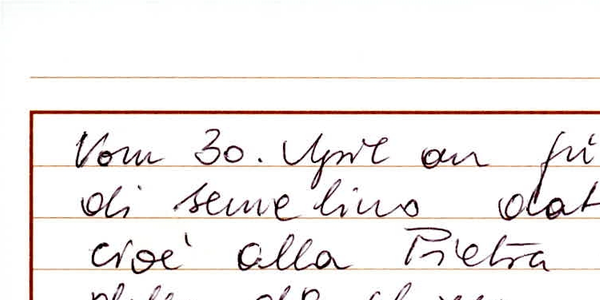 Vom 30. April an fü
di seme lino dat
cioè alla Pietra